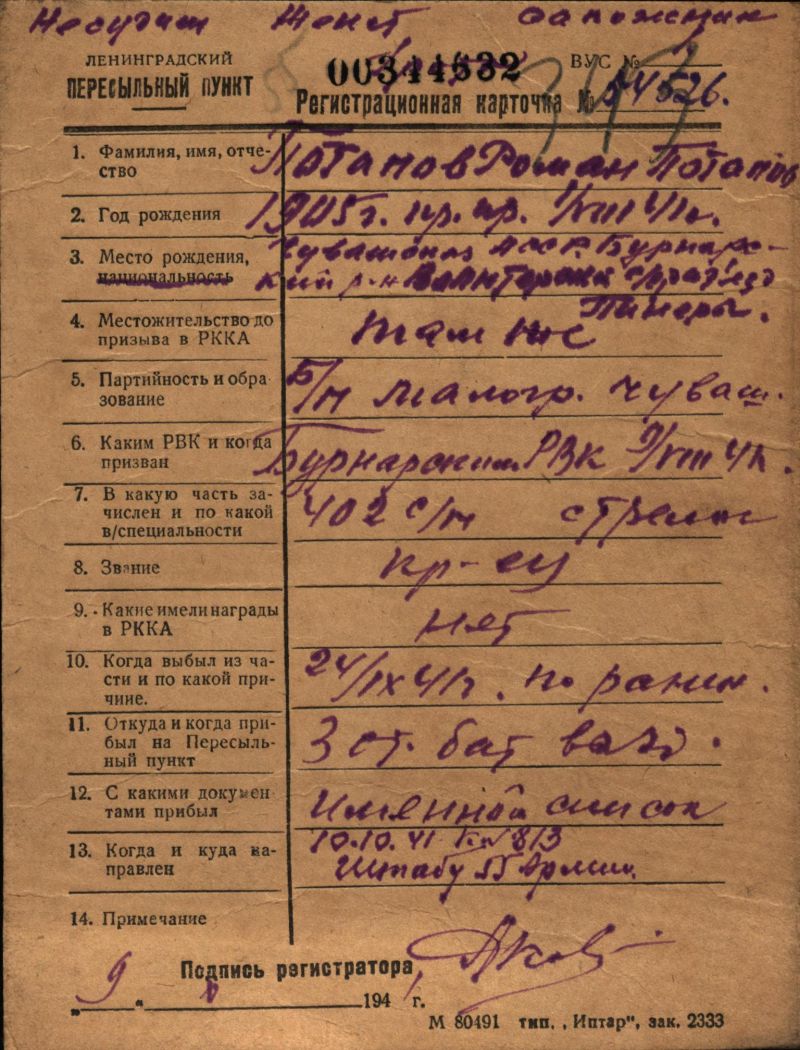 Несудим Женат Сапожник
ЛЕНИНГРАДСКИЙ
ПЕРЕСЫЛЬНЫЙ ПУНКТ
00344532
ВУС №
Регистрационная карточка № 54526.
1. Фамилия, имя, отче-
ство
Потапов Роман Потапов
2. Год рождения
1905 г. пр. пр. VIII 41 г.
3. Место рождения,
национальность
Чувашская АССР. Бурнарс-
кий р-н
4. Местожительство до
призыва в РККА
там же
5. Партийность и обра
зование
Б/п малогр. чуваш.
6. Каким РВК и когда
призван
Бурнарским РВК 9/VIII 41 г.
7. В какую часть за-
числен и по какой
в/специальности
402 с/п стрелок
8. Звание
кр-ец
9. Какие имели награды
в РККА
нет
10. Когда выбыл из ча-
сти и по какой при-
чине.
24/IX 41 г. по ранен.
11. Откуда и когда при-
был на Пересыль-
ный пункт
3 ст. бат
12. С какими докумен
тами прибыл
Именной список
13. Когда и куда на-
правлен
10.10.41 К № 813
Штабу 55 Армии
14. Примечание
Подпись регистратора
9 X 1941 г.
М 80491 тип. „Иптар“, зак. 2333